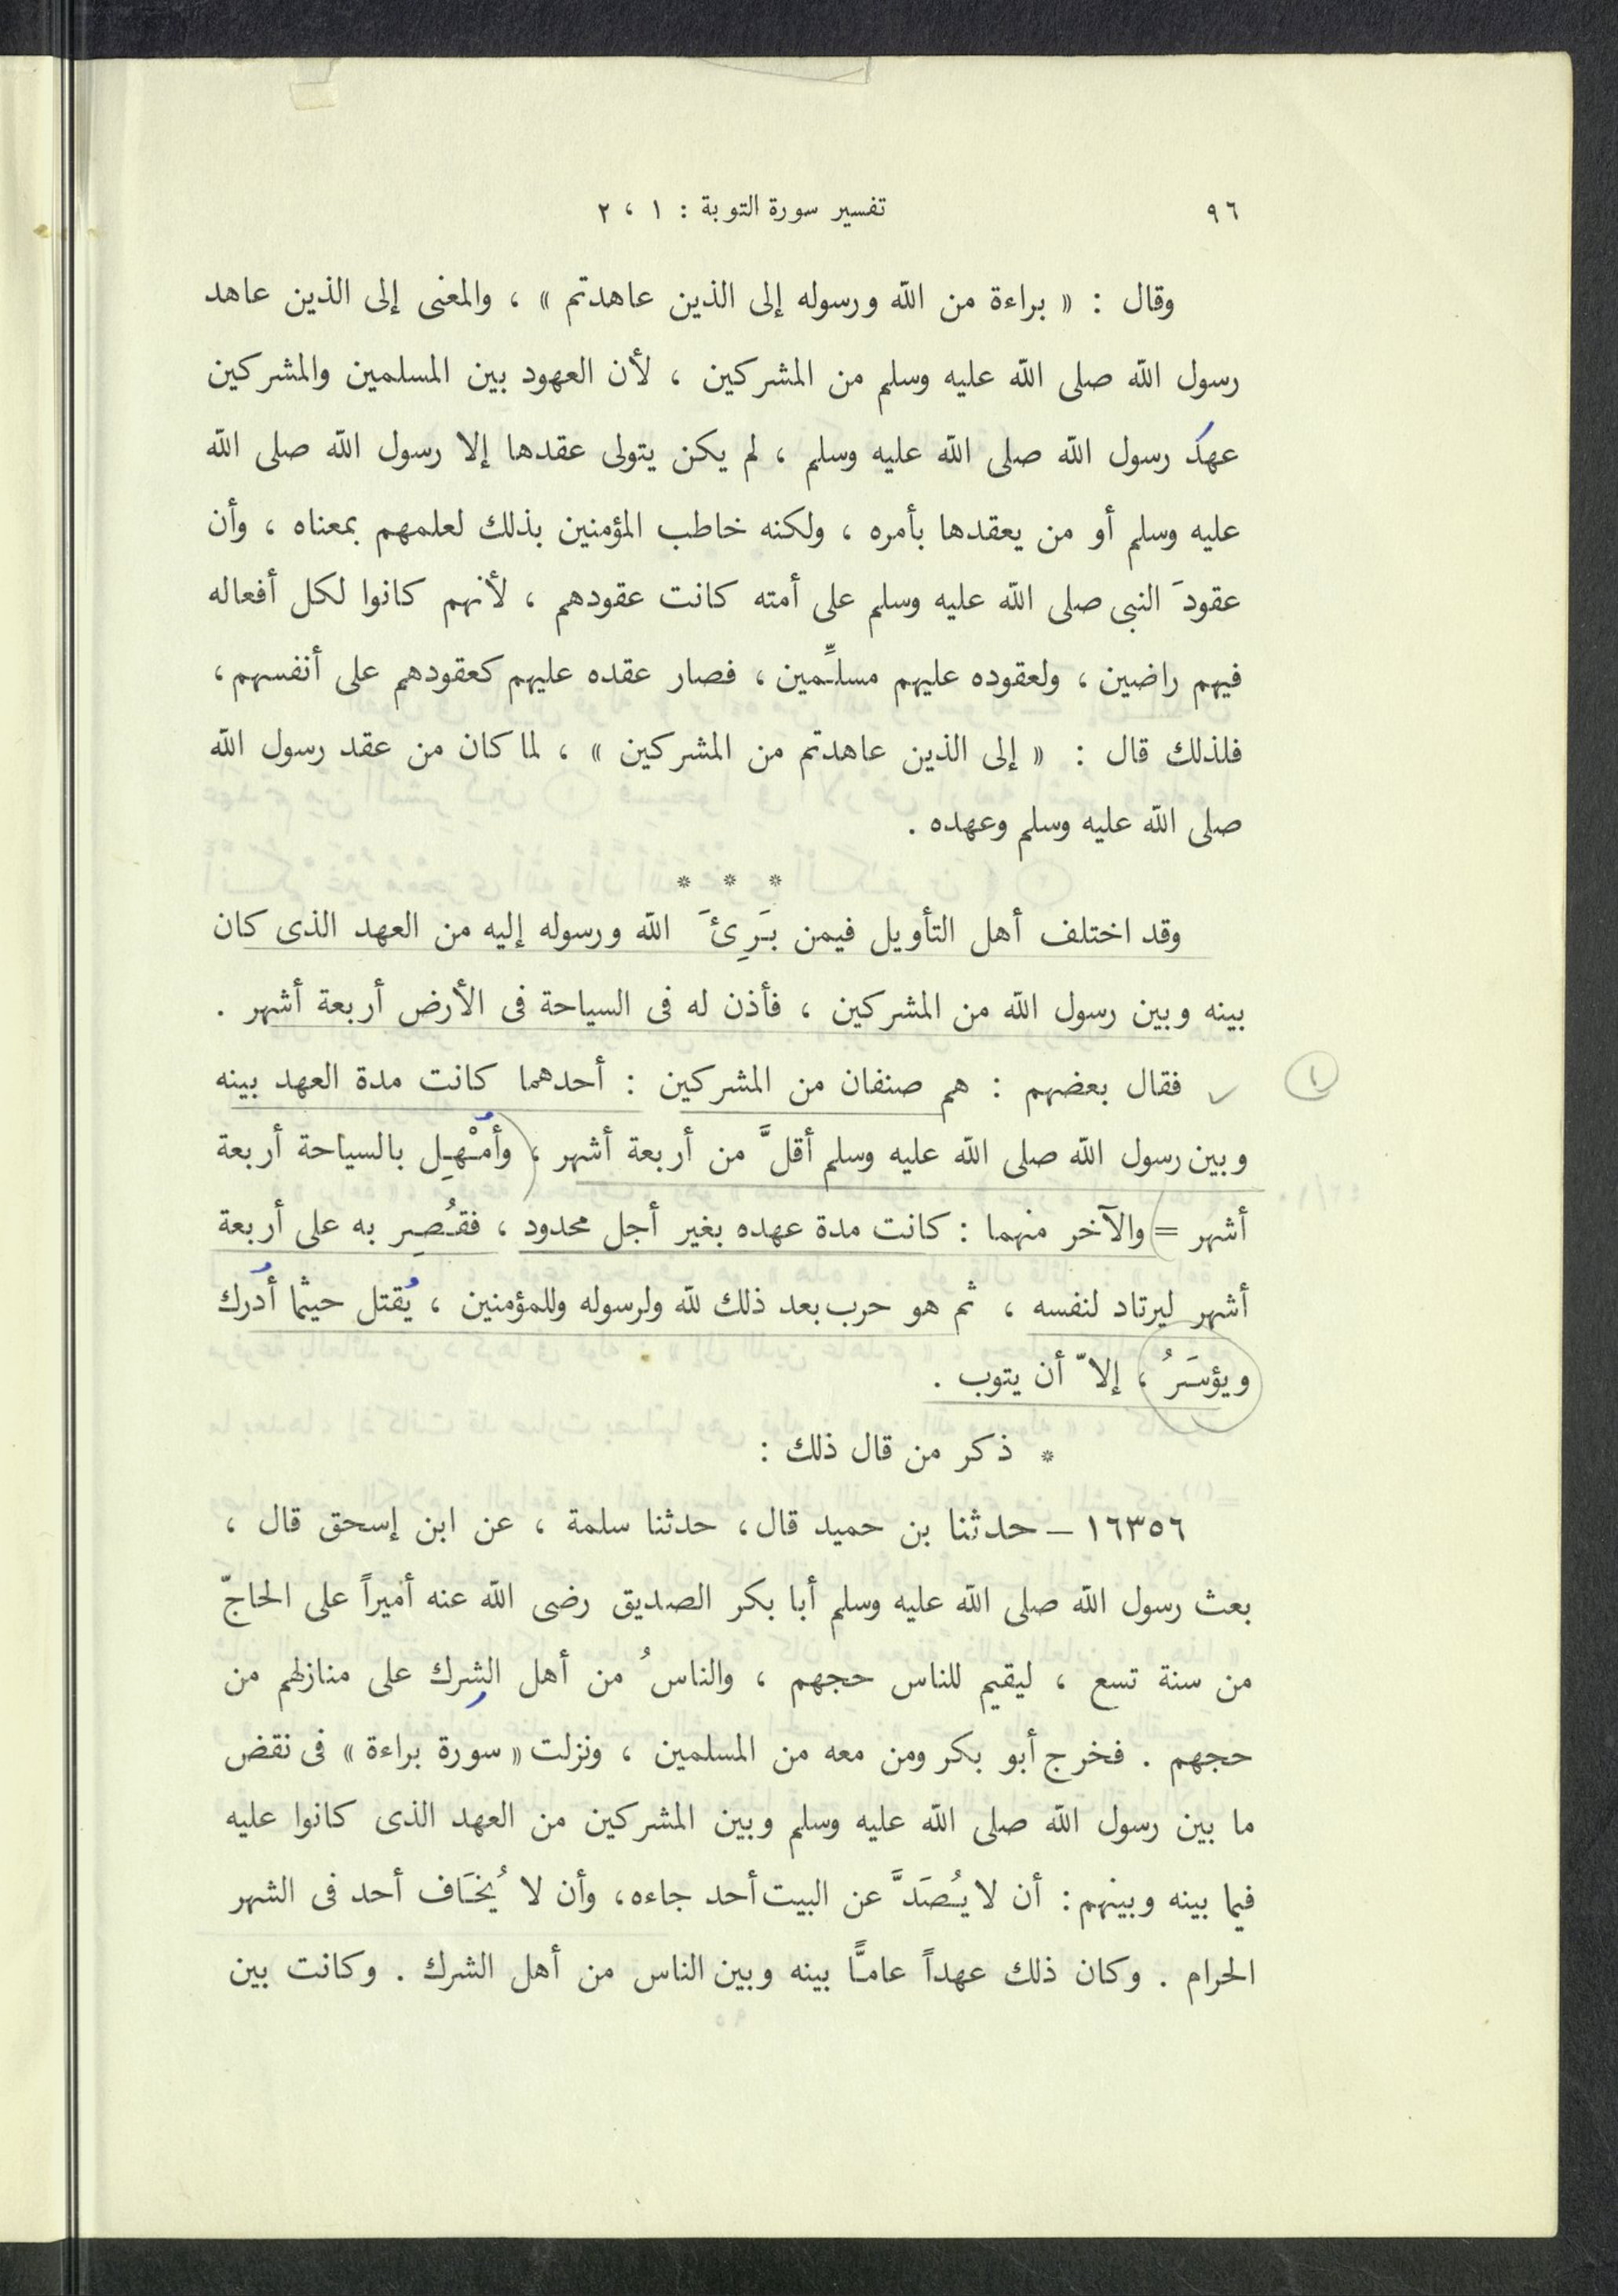 ٩٦ تفسير سورة التوبة : ١ ، ٢
وقال : « براءة من الله ورسوله إلى الذين عاهدتم » ، والمعنى إلى الذين عاهد
رسول الله صلى الله عليه وسلم من المشركين ، لأن العهود بين المسلمين والمشركين
عهدَ رسول الله صلى الله عليه وسلم ، لم يكن يتولى عقدها إلا رسول الله صلى الله
عليه وسلم أو من يعقدها بأمره ، ولكنه خاطب المؤمنين بذلك لعلمهم بمعناه ، وأن
عقودَ النبى صلى الله عليه وسلم على أمته كانت عقودهم ، لأنهم كانوا لكل أفعاله
فيهم راضين ، ولعقوده عليهم مسلِّمين ، فصار عقده عليهم كعقودهم على أنفسهم ،
فلذلك قال : « إلى الذين عاهدتم من المشركين » ، لما كان من عقد رسول الله
صلى الله عليه وسلم وعهده .
* * *
وقد اختلف أهل التأويل فيمن بَرِئَ الله ورسوله إليه من العهد الذى كان
بينه وبين رسول الله من المشركين ، فأذن له فى السياحة فى الأرض أربعة أشهر .
١ ✓ فقال بعضهم : هم صنفان من المشركين : أحدهما كانت مدة العهد بينه
وبين رسول الله صلى الله عليه وسلم أقلَّ من أربعة أشهر ، (وأُمْهِل بالسياحة أربعة
أشهر =) والآخر منهما : كانت مدة عهده بغير أجل محدود ، فقُصِر به على أربعة
أشهر ليرتاد لنفسه ، ثم هو حرب بعد ذلك لله ولرسوله وللمؤمنين ، يُقتل حيثما أُدرك
ويؤسَرُ ، إلاّ أن يتوب .
* ذكر من قال ذلك :
١٦٣٥٦ – حدثنا بن حميد قال ، حدثنا سلمة ، عن ابن إسحق قال ،
بعث رسول الله صلى الله عليه وسلم أبا بكر الصديق رضى الله عنه أميراً على الحاجّ
من سنة تسع ، ليقيم للناس حجهم ، والناسُ من أهل الشرك على منازلهم من
حجهم . فخرج أبو بكر ومن معه من المسلمين ، ونزلت « سورة براءة » فى نقض
ما بين رسول الله صلى الله عليه وسلم وبين المشركين من العهد الذى كانوا عليه
فيما بينه وبينهم : أن لا يُصَدَّ عن البيت أحد جاءه ، وأن لا يُخَاف أحد فى الشهر
الحرام . وكان ذلك عهداً عامًّا بينه وبين الناس من أهل الشرك . وكانت بين